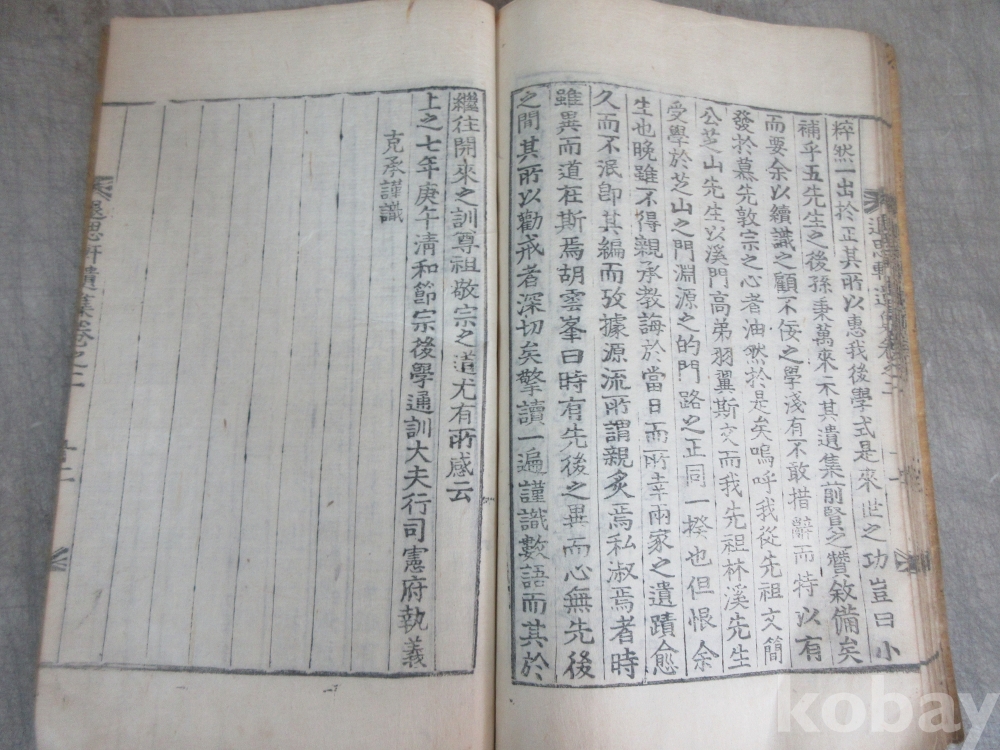 粹然一出於正其所以惠我後學式是來世之功豈曰小
補乎五先生之後孫秉萬來不其遺集前賢之贊敘備矣
而要余以續識之顧不佞之學淺有不敢措辭而特以有
發於慕先敦宗之心者油然於是矣嗚呼我從先祖文簡
公芝山先生以溪門高弟羽翼斯文而我先祖林溪先生
受學於芝山之門淵源之的門路之正同一揆也但恨余
生也晚雖不得親承教誨於當日而所幸兩家之遺蹟愈
久而不泯卽其編而攷據源流所謂親炙焉私淑焉者時
雖異而道在斯焉胡雲峯曰時有先後之異而心無先後
之間其所以勸戒者深切矣擎讀一遍謹識數語而其於
繼往開來之訓尊祖敬宗之道尤有所感云
上之七年庚午淸和節宗後學通訓大夫行司憲府執義
克承謹識
kobay